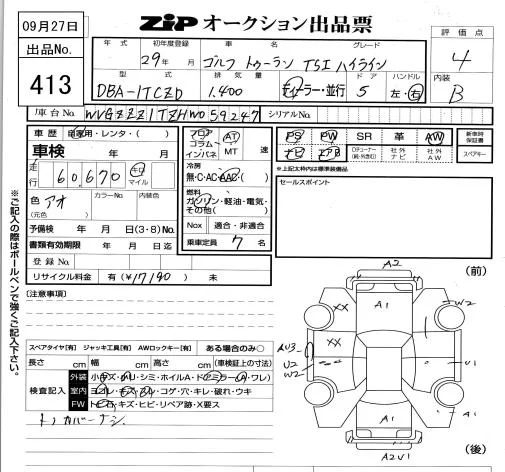 09月27日
出品No.
413
ZiPオークション出品票
評価点
4
内装
B
年式
初年度登録
車名
グレード
29年 月
ゴルフ トゥーラン TSI ハイライン
型式
排気量
ドア
ハンドル
DBA-1TCZD
1,400
ディーラー・並行
5
左・右
車台No.
WVGZZZ1TZHW059247
シリアルNo.
車歴 自家用・レンタ・( )
車検 年 月
走行 60,670 キロ マイル
色 アオ
(元色)
カラーNo.
内装色
予備検 年 月 日(3・8)No.
書類有効期限 年 月 日迄
登録No.
リサイクル料金 有(¥17190) 未
フロア
コラム
インパネ
AT
MT
速
冷房
無・C・AC・AAC
燃料
ガソリン・軽油・電気・
その他( )
Nox 適合・非適合
乗車定員 7 名
PS
PW
SR
革
AW
ナビ
DFチューナー
社外
ナビ
社外
AW
新車時
保証書
スペアキー
※上記太枠内は標準装備品
セールスポイント
※ご記入の際はボールペンで強くご記入下さい。
[注意事項]
スペアタイヤ[有] ジャッキ工具[有] AWロックキー[有] ある場合のみ○
長さ cm 幅 cm 高さ cm (車検証上の寸法)
検査記入
外装
室内
FW
トノカバーナシ
(前)
A2
A1
W2
XX
XX
AU3
U2
W2
U1
A1
A1
A2U1
(後)